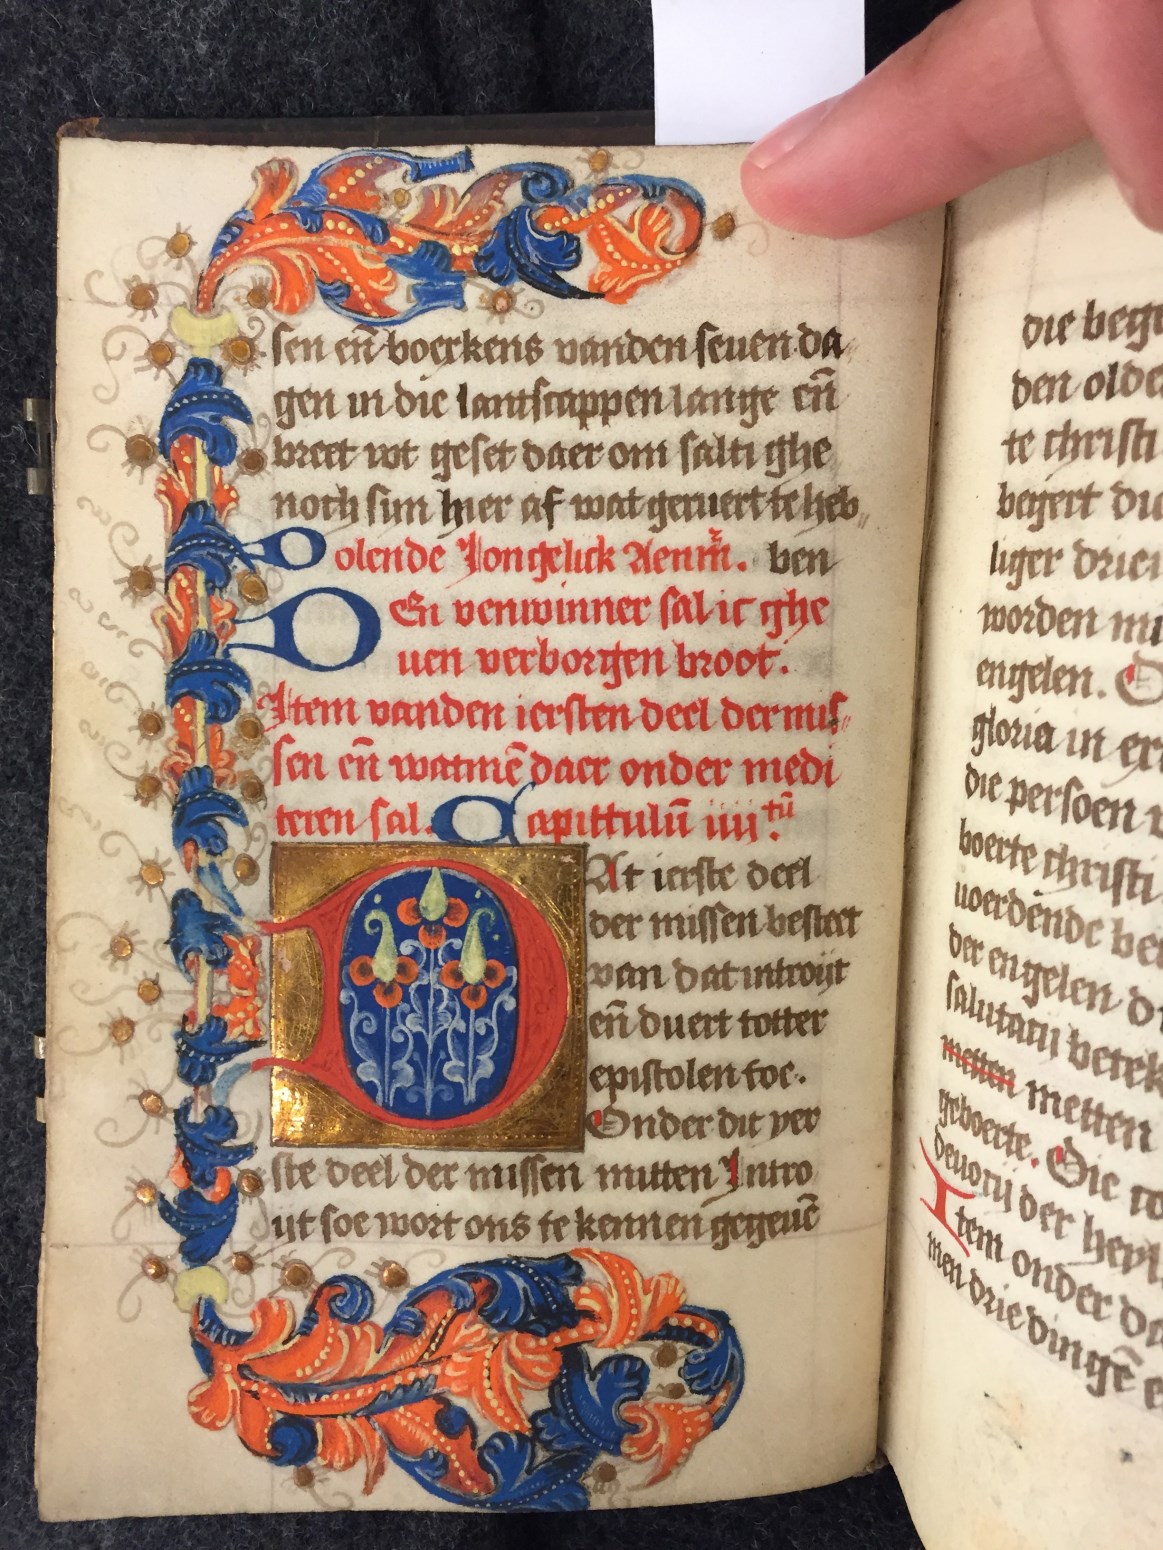 sen en̄ boexkens vanden seuen da
gen in die lantscappen lange en̄
breet wt geset daer om salti ghe
noch sun hier af wat geruert te heb
olende Jongelick Aenm̄. ben
En verwinner sal ic ghe
uen verborgen broot.
Item vanden iersten deel der mis
sen en̄ watmē daer onder medi
teren sal. Capittulū iiij.tū
DAt ierste deel
der missen besteet
van dat introijt
en̄ duert totter
epistolen toe.
Onder dit yer
ste deel der missen mitten Intro
ijt soe wort ons te kennen gegeuē
die beg
den olde
te christi
begert di
liger driē
worden mi
engelen.
gloria in ex
die persoen
boerte christi
uoerdende be
der engelen d
salutari betek
metten metten
geboerte. Die
deuorij der heyl
Item onder d
men drie dingē e